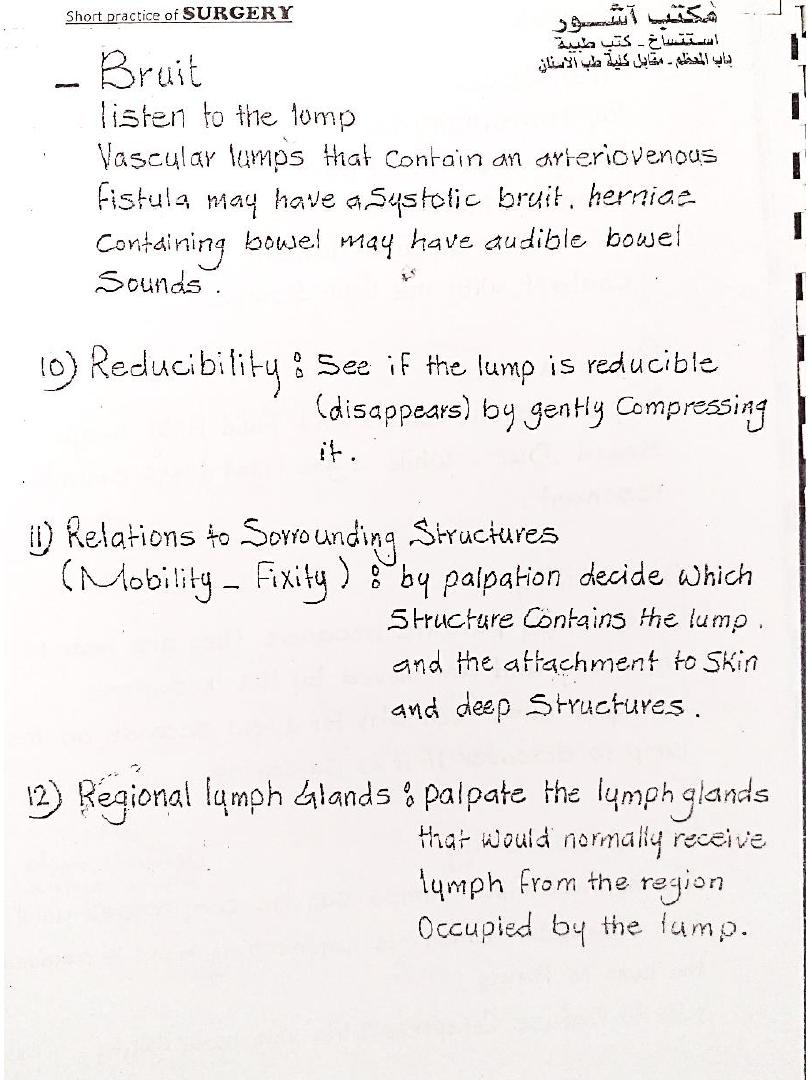 Short practice of SURGERY
مكتب آشور
استنساخ - كتب طبية
باب المعظم - مقابل كلية طب الاسنان
- Bruit
listen to the lump
Vascular lumps that contain an arteriovenous
fistula may have a Systolic bruit. herniae
Containing bowel may have audible bowel
Sounds.
10) Reducibility : See if the lump is reducible
(disappears) by gently Compressing
it.
11) Relations to Sorrounding Structures
(Mobility - Fixity) : by palpation decide which
Structure Contains the lump.
and the attachment to Skin
and deep Structures.
12) Regional lymph Glands : palpate the lymph glands
that would normally receive
lymph from the region
Occupied by the lump.